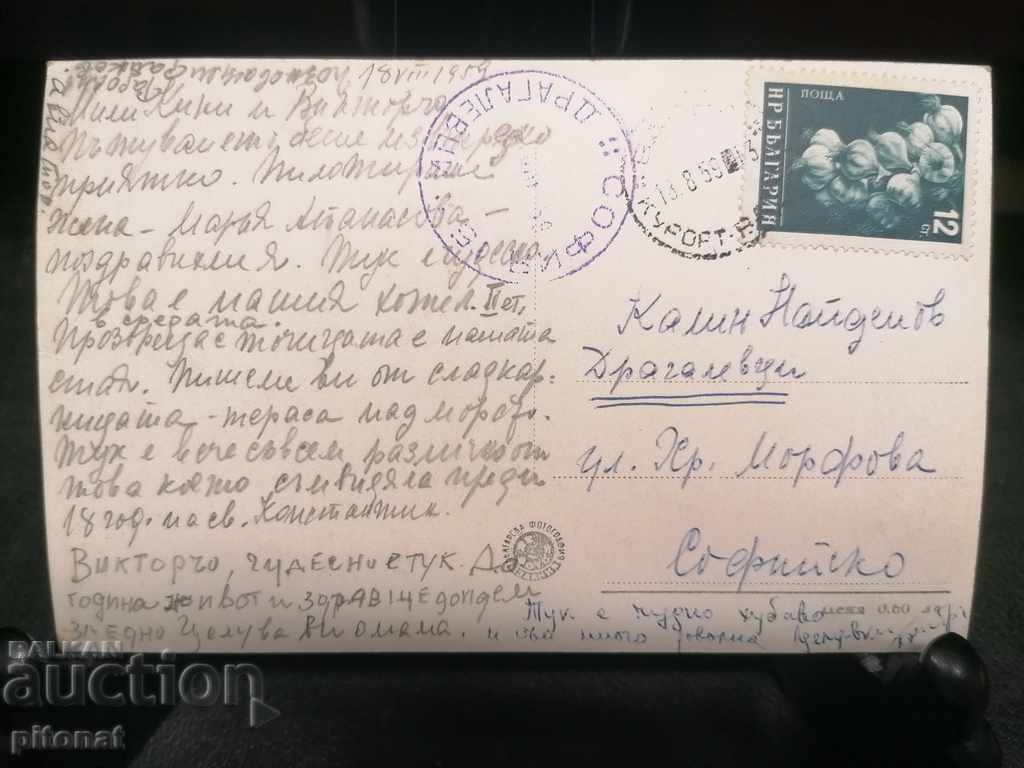 18 VIII 1959
Мили Кини и Викторчо
Пътуването беше извънредно
приятно. Пилотираше
жена - Мария Атанасова -
поздравихме я. Тук е чудесно.
Това е нашия хотел. II ет.
в средата.
Прозореца с точицата е нашата
стая. Пишем ви от сладкар-
ницата - тераса над морето.
Тук е вече съвсем различно от
това което съм видяла преди
18 год. на св. Константин.
Викторчо, чудесно е тук. До
година живот и здраве ще дойдем
заедно Целува ви мама.
Тук е чудно хубаво
и съм много доволна
НР БЪЛГАРИЯ
ПОЩА
12 ст.
СОФИЯ
ДРАГАЛЕВЦИ
КУРОРТ-ВА
19.8.59
Калин Найденов
Драгалевци
ул. Хр. Морфова
Софийско
БЪЛГАРСКА ФОТОГРАФИЯ
цена 0.60 лв.
BALKAN
auction
pitonat